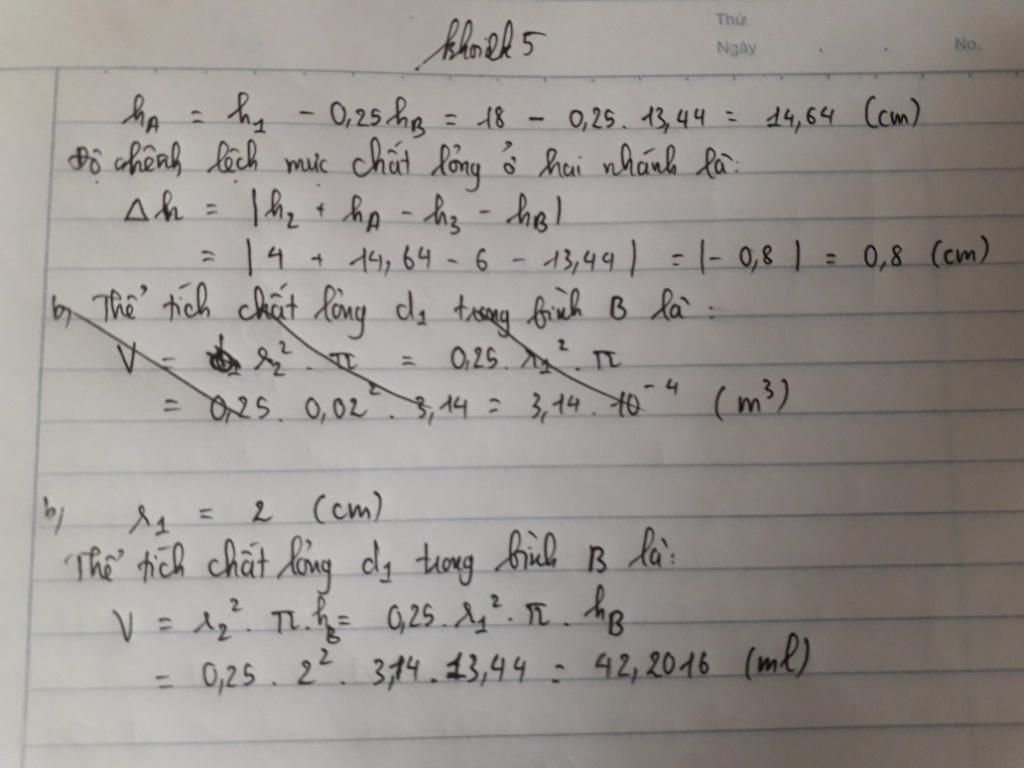 Thứ
Ngày . . No.
h_A = h_1 - 0,25h_B = 18 - 0,25. 13,44 = 14,64 (cm)
Độ chênh lệch mực chất lỏng ở hai nhánh là:
Δh = |h_2 + h_A - h_3 - h_B|
= |4 + 14,64 - 6 - 13,44| = |- 0,8| = 0,8 (cm)
b, Thể tích chất lỏng d_1 trong bình B là :
V = r_2² . π = 0,25. r_1² . π
= 0,25. 0,02² . 3,14 = 3,14. 10⁻⁴ (m³)
b, r_1 = 2 (cm)
Thể tích chất lỏng d_1 trong bình B là:
V = r_2² . π.h_B = 0,25.r_1² . π . h_B
= 0,25 . 2² . 3,14 .13,44 = 42,2016 (ml)